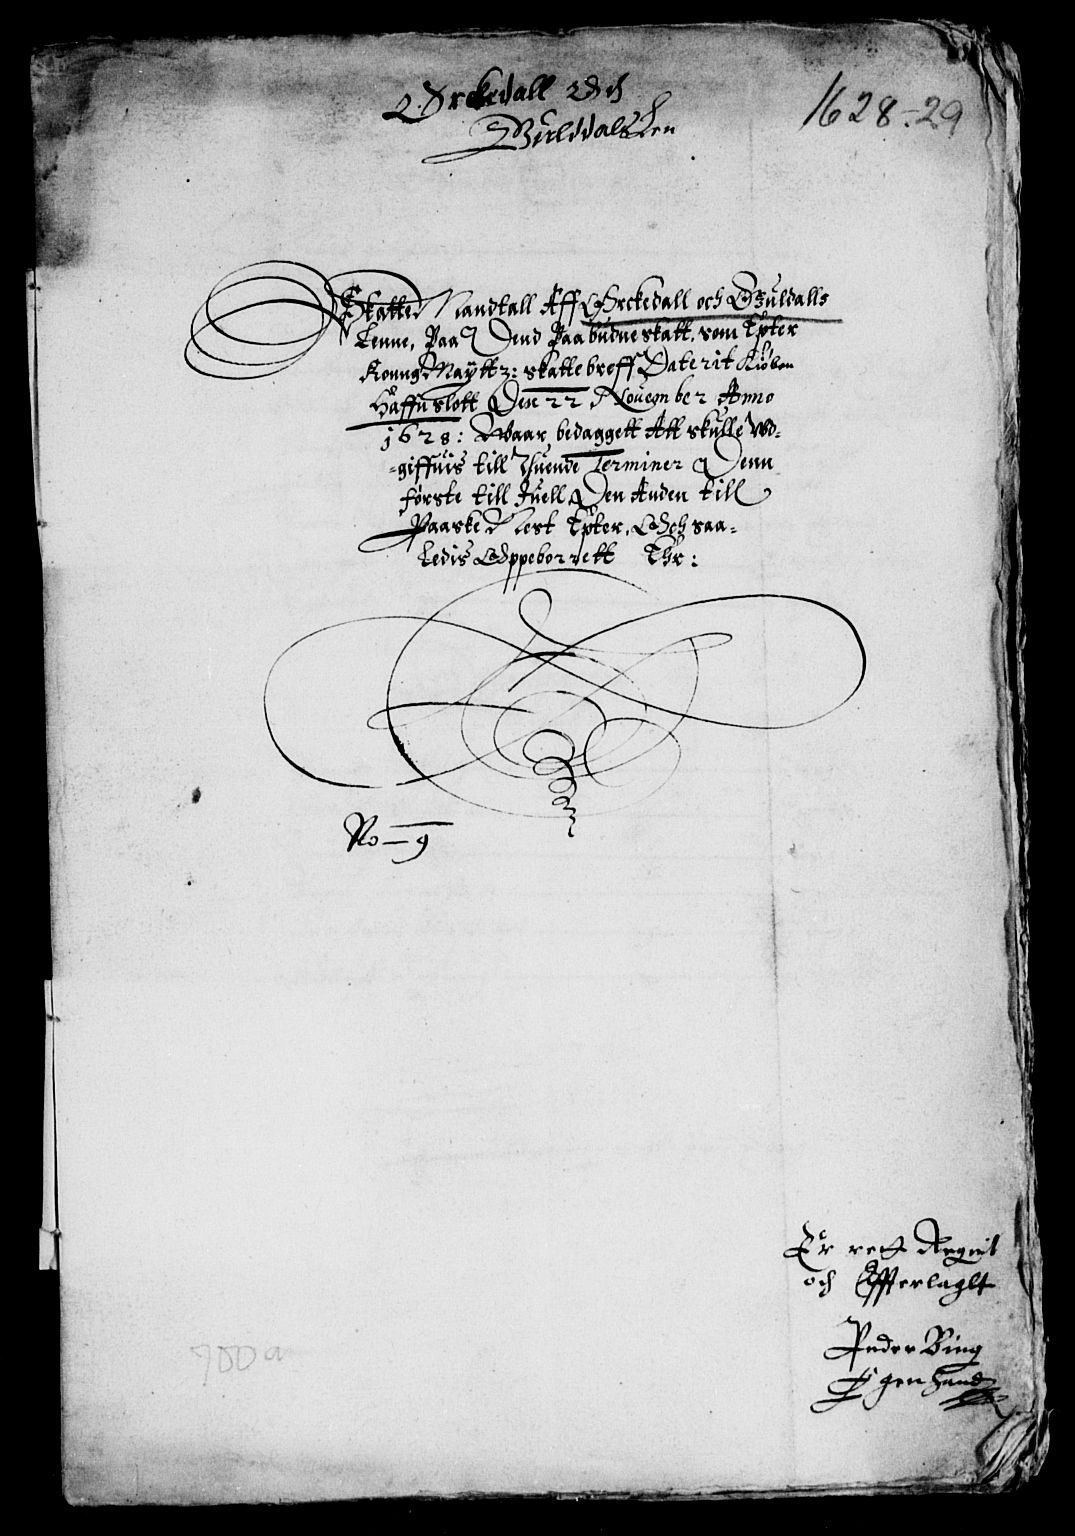 Ørckedall Och
Guldals Len
1628-29
Skatte Mandtall Aff Ørckedall och Guldalls
Lenne, Paa Dend Paabudne skatt, som Epter
Konng Maÿttz: skattebreff Daterit Kiøben
Haffn slott Den 22 Nouember Anno
1628: Waar bedaggett Att skulle wd-
-giffuis till Thuende Terminer Denn
første till Juell Den Anden till
Paaske Nest Epter, Och saa-
ledis Oppeborrett Ehr:
No - 9
Er rett Regnit
och Offuerlaglt
Peder Bing
Egen Hand
700a